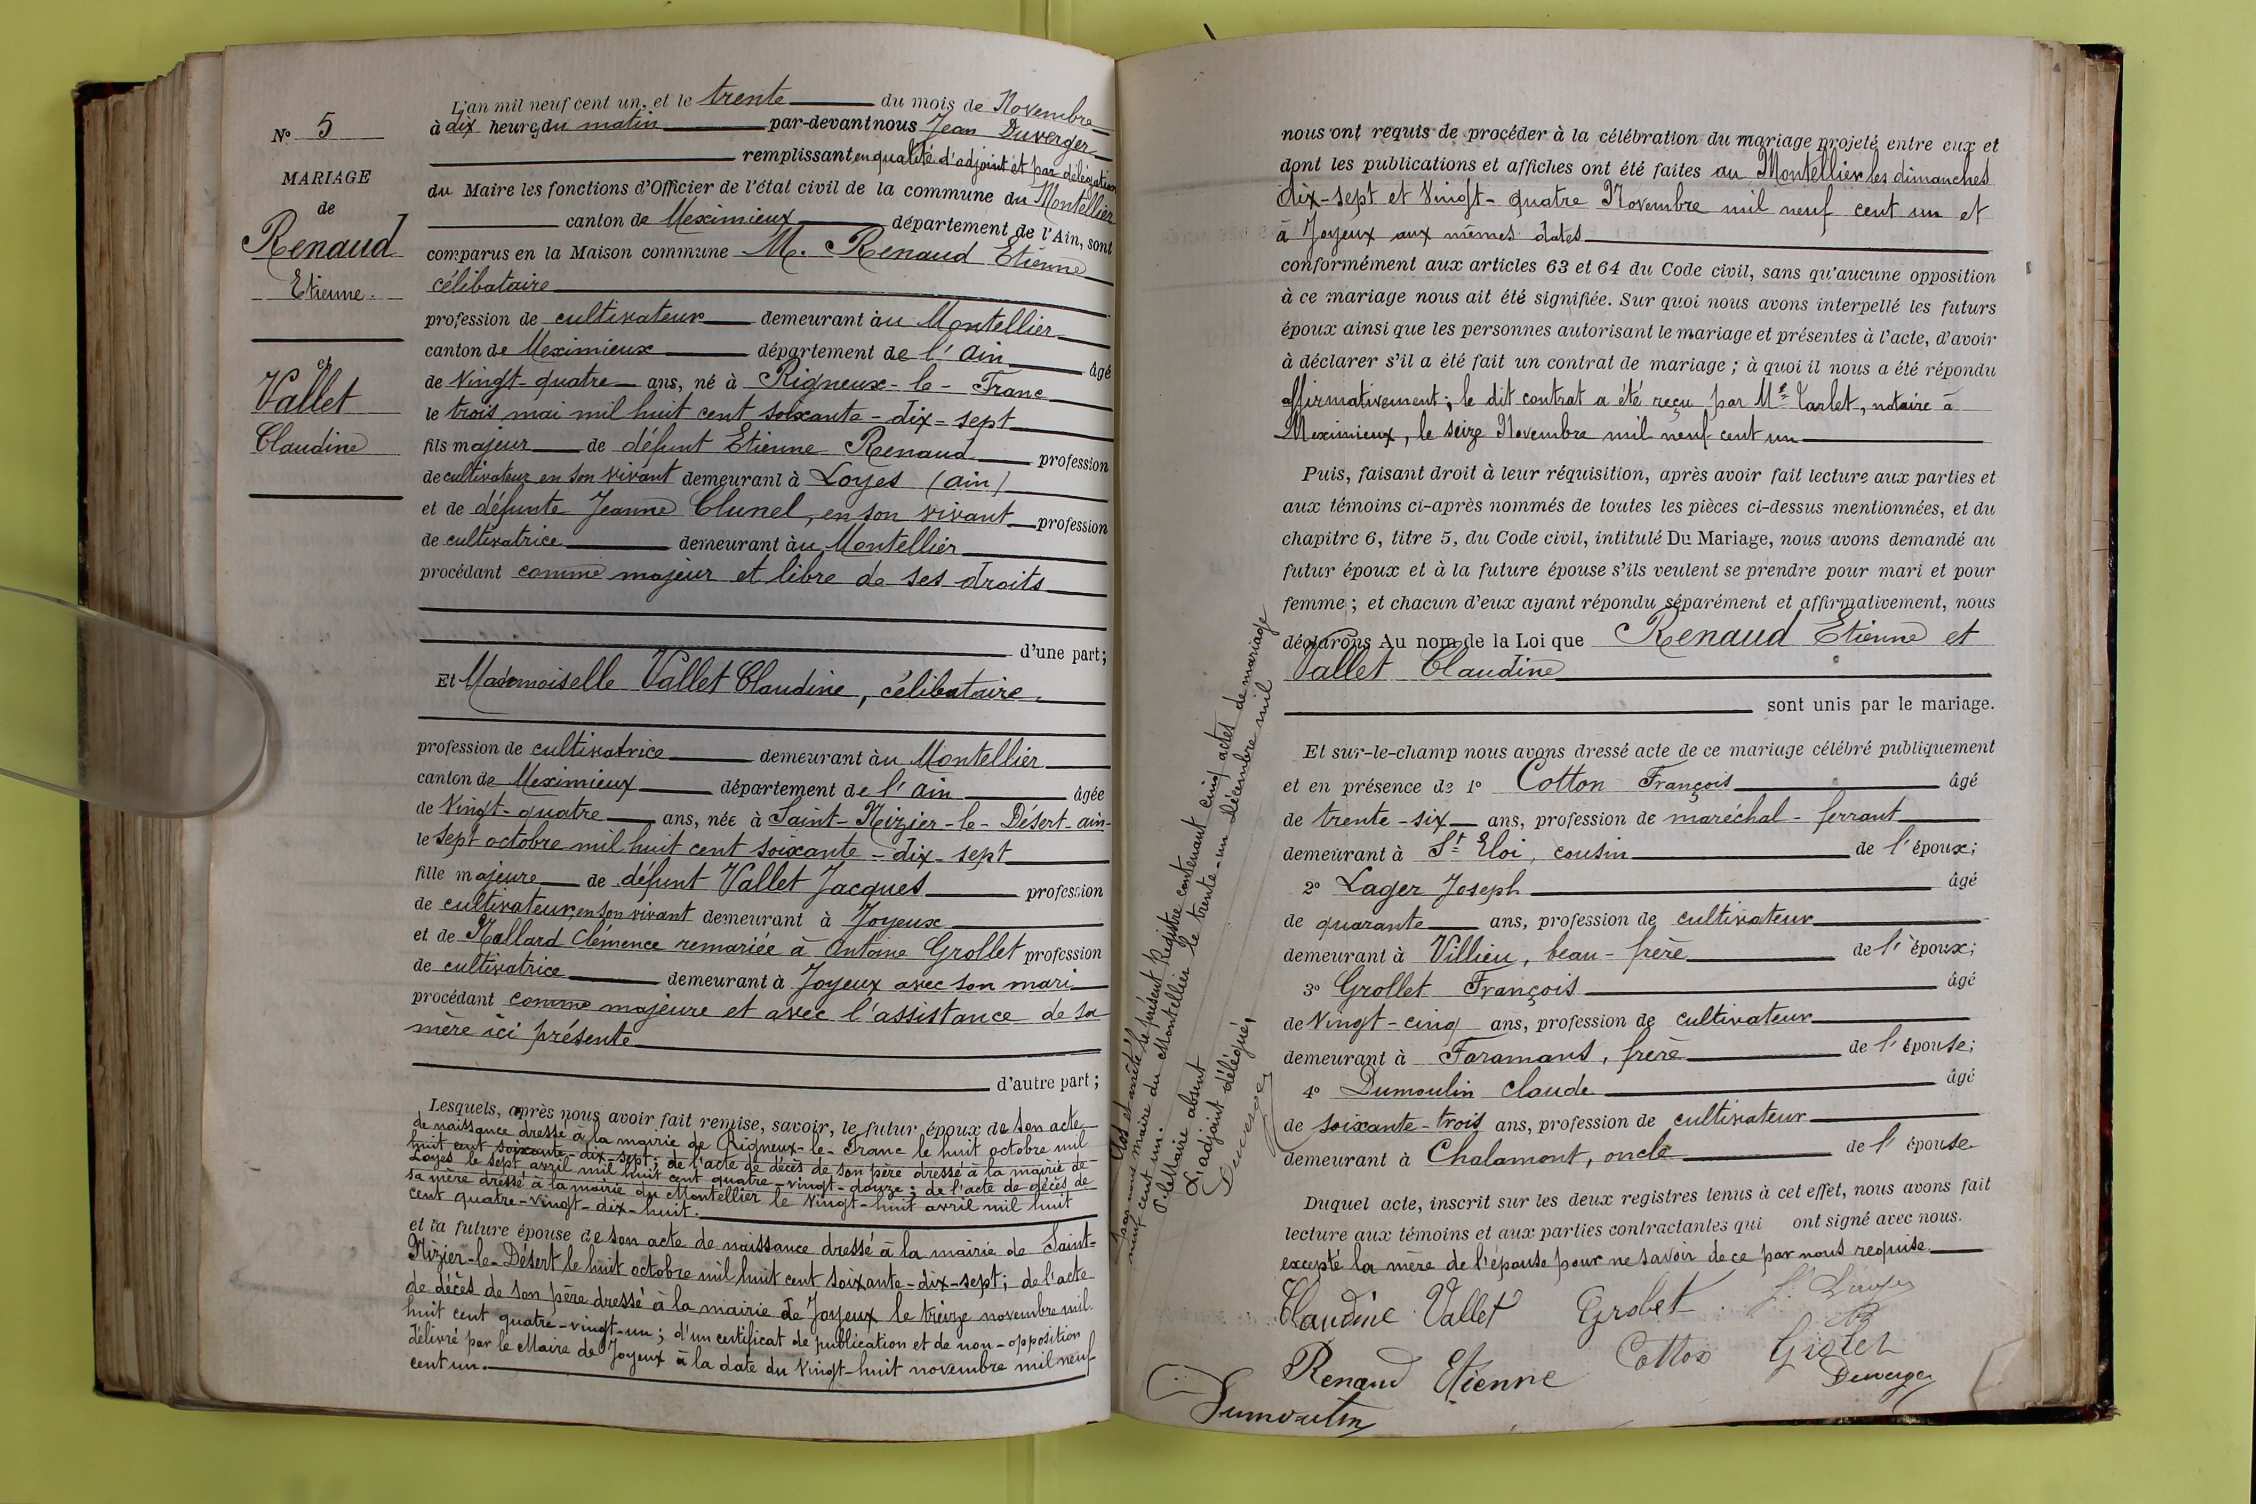 L'an mil neuf cent un, et le trente du mois de Novembre
N° 5
à dix heures du matin par-devant nous Jean Duverger
remplissant en qualité d'adjoint et par délégation
MARIAGE
du Maire les fonctions d'Officier de l'état civil de la commune du Montellier
de
canton de Meximieux département de l'Ain, sont
Renaud
comparus en la Maison commune M. Renaud Etienne
Etienne.
célibataire
profession de cultivateur demeurant au Montellier
et
canton de Meximieux département de l'ain âgé
Vallet
de vingt-quatre ans, né à Rigneux-le-Franc
Claudine
le trois mai mil huit cent soixante-dix-sept
fils majeur de défunt Etienne Renaud profession
de cultivateur en son vivant demeurant à Loyes (ain)
et de défunte Jeanne Clunel, en son vivant profession
de cultivatrice demeurant àu Montellier
procédant comme majeur et libre de ses droits
d'une part;
Et Mademoiselle Vallet Claudine, célibataire.
profession de cultivatrice demeurant àu Montellier
canton de Meximieux département de l'ain âgée
de Vingt-quatre ans, née à Saint-Nizier-le-Désert-ain-
le sept octobre mil huit cent soixante-dix-sept
fille majeure de défunt Vallet Jacques profession
de cultivateur, en son vivant demeurant à Joyeux
et de Mallard Clémence remariée à Antoine Grollet profession
de cultivatrice demeurant à Joyeux avec son mari
procédant comme majeure et avec l'assistance de sa
mère ici présente
d'autre part;
Lesquels, après nous avoir fait remise, savoir, le futur époux de son acte
de naissance dressé à la mairie de Rigneux-le-Franc le huit octobre mil
huit cent soixante-dix-sept; de l'acte de décès de son père dressé à la mairie de
Loyes le sept avril mil huit cent quatre-vingt-douze; de l'acte de décès de
sa mère dressé à la mairie du Montellier le vingt-huit avril mil huit
cent quatre-vingt-dix-huit.
et la future épouse de son acte de naissance dressé à la mairie de Saint-
Nizier-le-Désert le huit octobre mil huit cent soixante-dix-sept; de l'acte
de décès de son père dressé à la mairie de Joyeux le treize novembre mil
huit cent quatre-vingt-un; d'un certificat de publication et de non-opposition
délivré par le Maire de Joyeux à la date du Vingt-huit novembre mil neuf
cent un.
Clos et arrêté le présent Registre contenant cinq actes de mariage
par nous maire du Montellier le trente-un décembre mil
neuf cent un.
P. le Maire absent
L'adjoint délégué,
Duverger
nous ont requis de procéder à la célébration du mariage projeté entre eux et
dont les publications et affiches ont été faites au Montellier les dimanches
dix-sept et Vingt-quatre Novembre mil neuf cent un et
à Joyeux aux mêmes dates
conformément aux articles 63 et 64 du Code civil, sans qu'aucune opposition
à ce mariage nous ait été signifiée. Sur quoi nous avons interpellé les futurs
époux ainsi que les personnes autorisant le mariage et présentes à l'acte, d'avoir
à déclarer s'il a été fait un contrat de mariage; à quoi il nous a été répondu
affirmativement; le dit contrat a été reçu par Me Tarlet, notaire à
Meximieux, le seize Novembre mil neuf cent un
Puis, faisant droit à leur réquisition, après avoir fait lecture aux parties et
aux témoins ci-après nommés de toutes les pièces ci-dessus mentionnées, et du
chapitre 6, titre 5, du Code civil, intitulé Du Mariage, nous avons demandé au
futur époux et à la future épouse s'ils veulent se prendre pour mari et pour
femme; et chacun d'eux ayant répondu séparément et affirmativement, nous
déclarons Au nom de la Loi que Renaud Etienne et
Vallet Claudine
sont unis par le mariage.
Et sur-le-champ nous avons dressé acte de ce mariage célébré publiquement
et en présence de 1° Cotton François âgé
de trente-six ans, profession de maréchal-ferrant
demeurant à St Eloi, cousin de l'époux;
2° Lager Joseph âgé
de quarante ans, profession de cultivateur
demeurant à Villieu, beau-frère de l'époux;
3° Grollet François âgé
de Vingt-cinq ans, profession de cultivateur
demeurant à Faramans, frère de l'épouse;
4° Dumoulin Claude âgé
de soixante-trois ans, profession de cultivateur
demeurant à Chalamont, oncle de l'épouse
Duquel acte, inscrit sur les deux registres tenus à cet effet, nous avons fait
lecture aux témoins et aux parties contractantes qui ont signé avec nous.
excepté la mère de l'épouse pour ne savoir de ce par nous requise
Claudine Vallet Grolet
Renaud Etienne Cotton Grolet
Duverger
Dumoulin